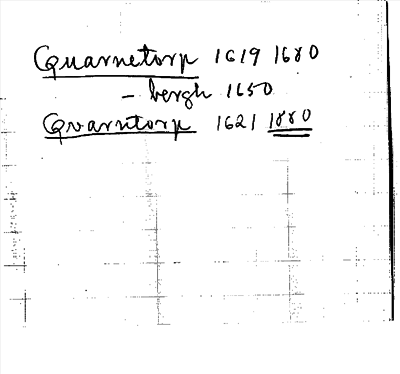 Quarnetorp 1619 1680
- bergh 1650
Qvarntorp 1621 1880